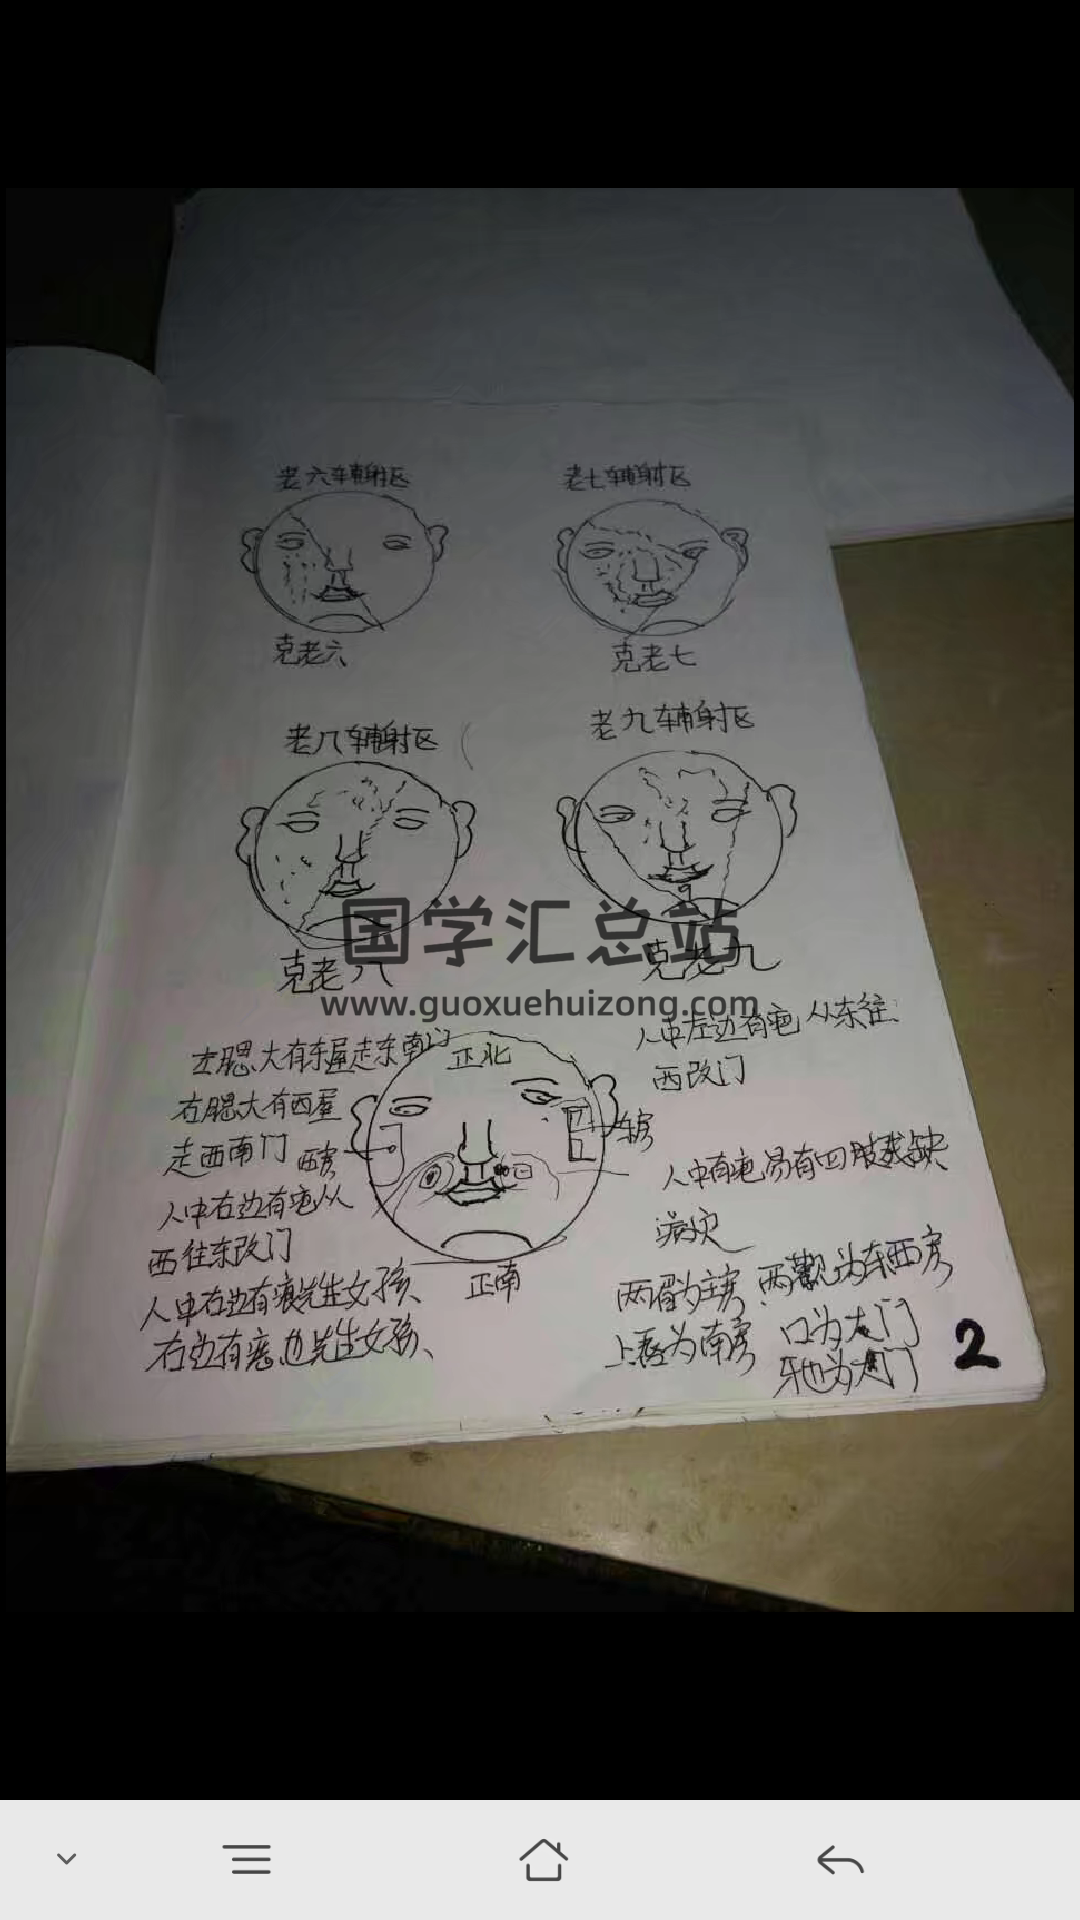 老六辐射区
老七辐射区
克老六
克老七
老八辐射区
老九辐射区
克老八
克老九
国学汇总站
www.guoxuehuizong.com
左腮大有东屋走东南门
正北
右腮大有西屋
走西南门
西房
人中右边有疤从
西往东改门
人中右边有痕先生女孩、
右边有痣也先生女孩、
正南
人中左边有疤从东往
西改门
东房
人中有疤易有四肢残缺
病灾
两眉为主房、两颧为东西房
上唇为南房
口为大门
牙也为大门
2